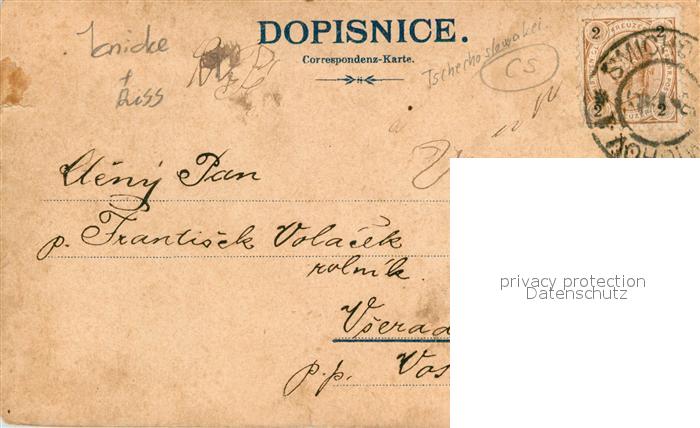 DOPISNICE.
Correspondenz-Karte.
Knicke
+
Riss
Tschechoslowakei
CS
2 KREUZER 2
2 2
SMICHOV
Ctěný Pan
p. František Volaček
rolník.
Všerad
p.p. Vos
privacy protection
Datenschutz